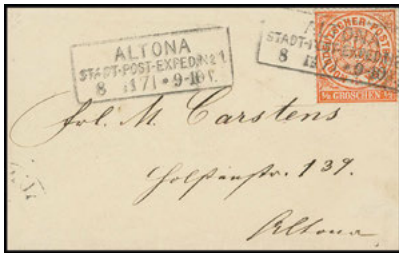 ALTONA
STADT-POST-EXPED. № 1.
8 1 71 • 9-10 V.
ALTONA
STADT-POST-EXPED.
8 9-10
NORDDEUTSCHER POST
½ GROSCHEN ½
Frl. M. Carstens
Holstenstr. 139.
Altona